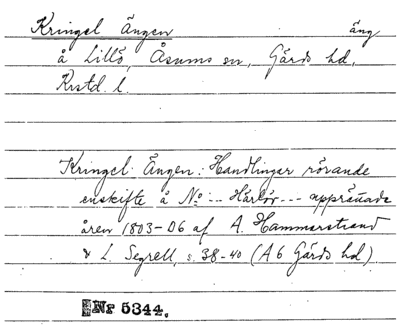 Kringel Ängen äng
å Lillö, Åsums sn, Gärds hd,
Krstd. l.
Kringel: Ängen: Handlingar rörande
enskifte å No: -- Härlöv --- upprättade
åren 1803-06 af A. Hammarstrand
& L. Segrell, s. 38-40 (A 6 Gärds hd).
Nr 5344.